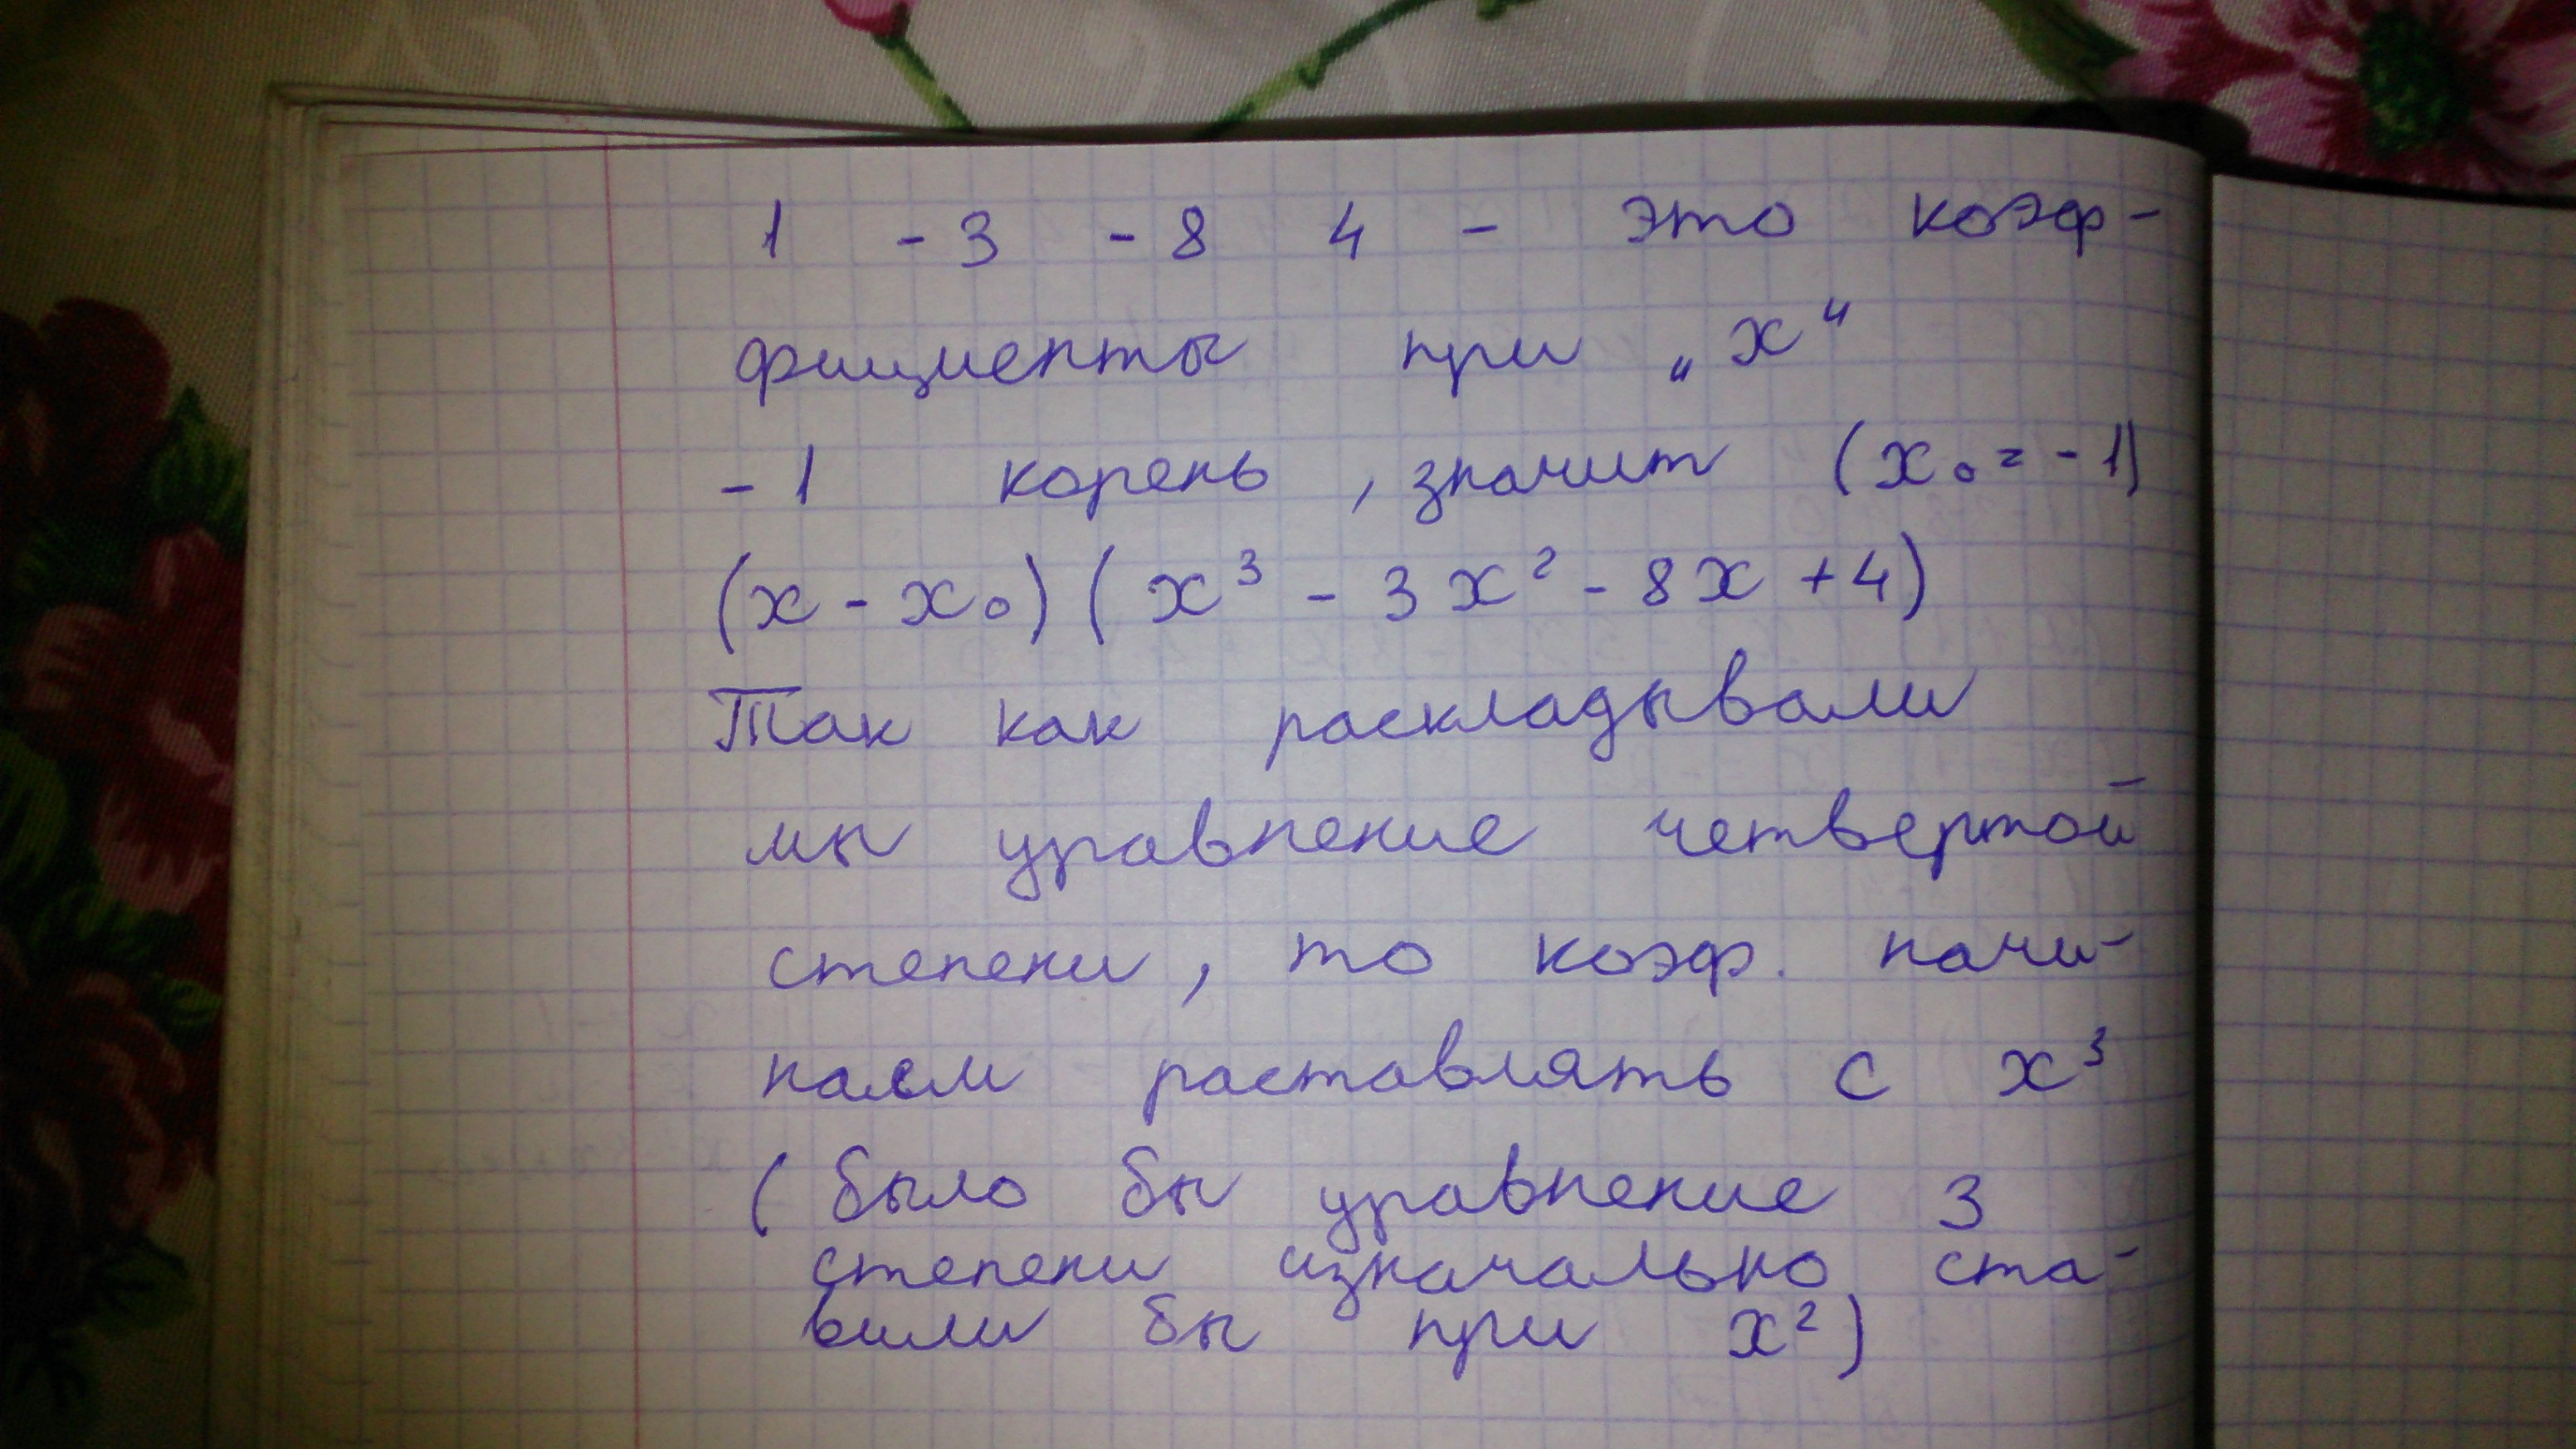 1 -3 -8 4 - это коэф-
фициенты при „x“
-1 корень, значит (x₀ = -1)
(x - x₀)(x³ - 3x² - 8x + 4)
Так как раскладывали
мы уравнение четвертой
степени, то коэф. начи-
наем раставлять с x³
(было бы уравнение 3
степени изначально ста-
вили бы при x²)